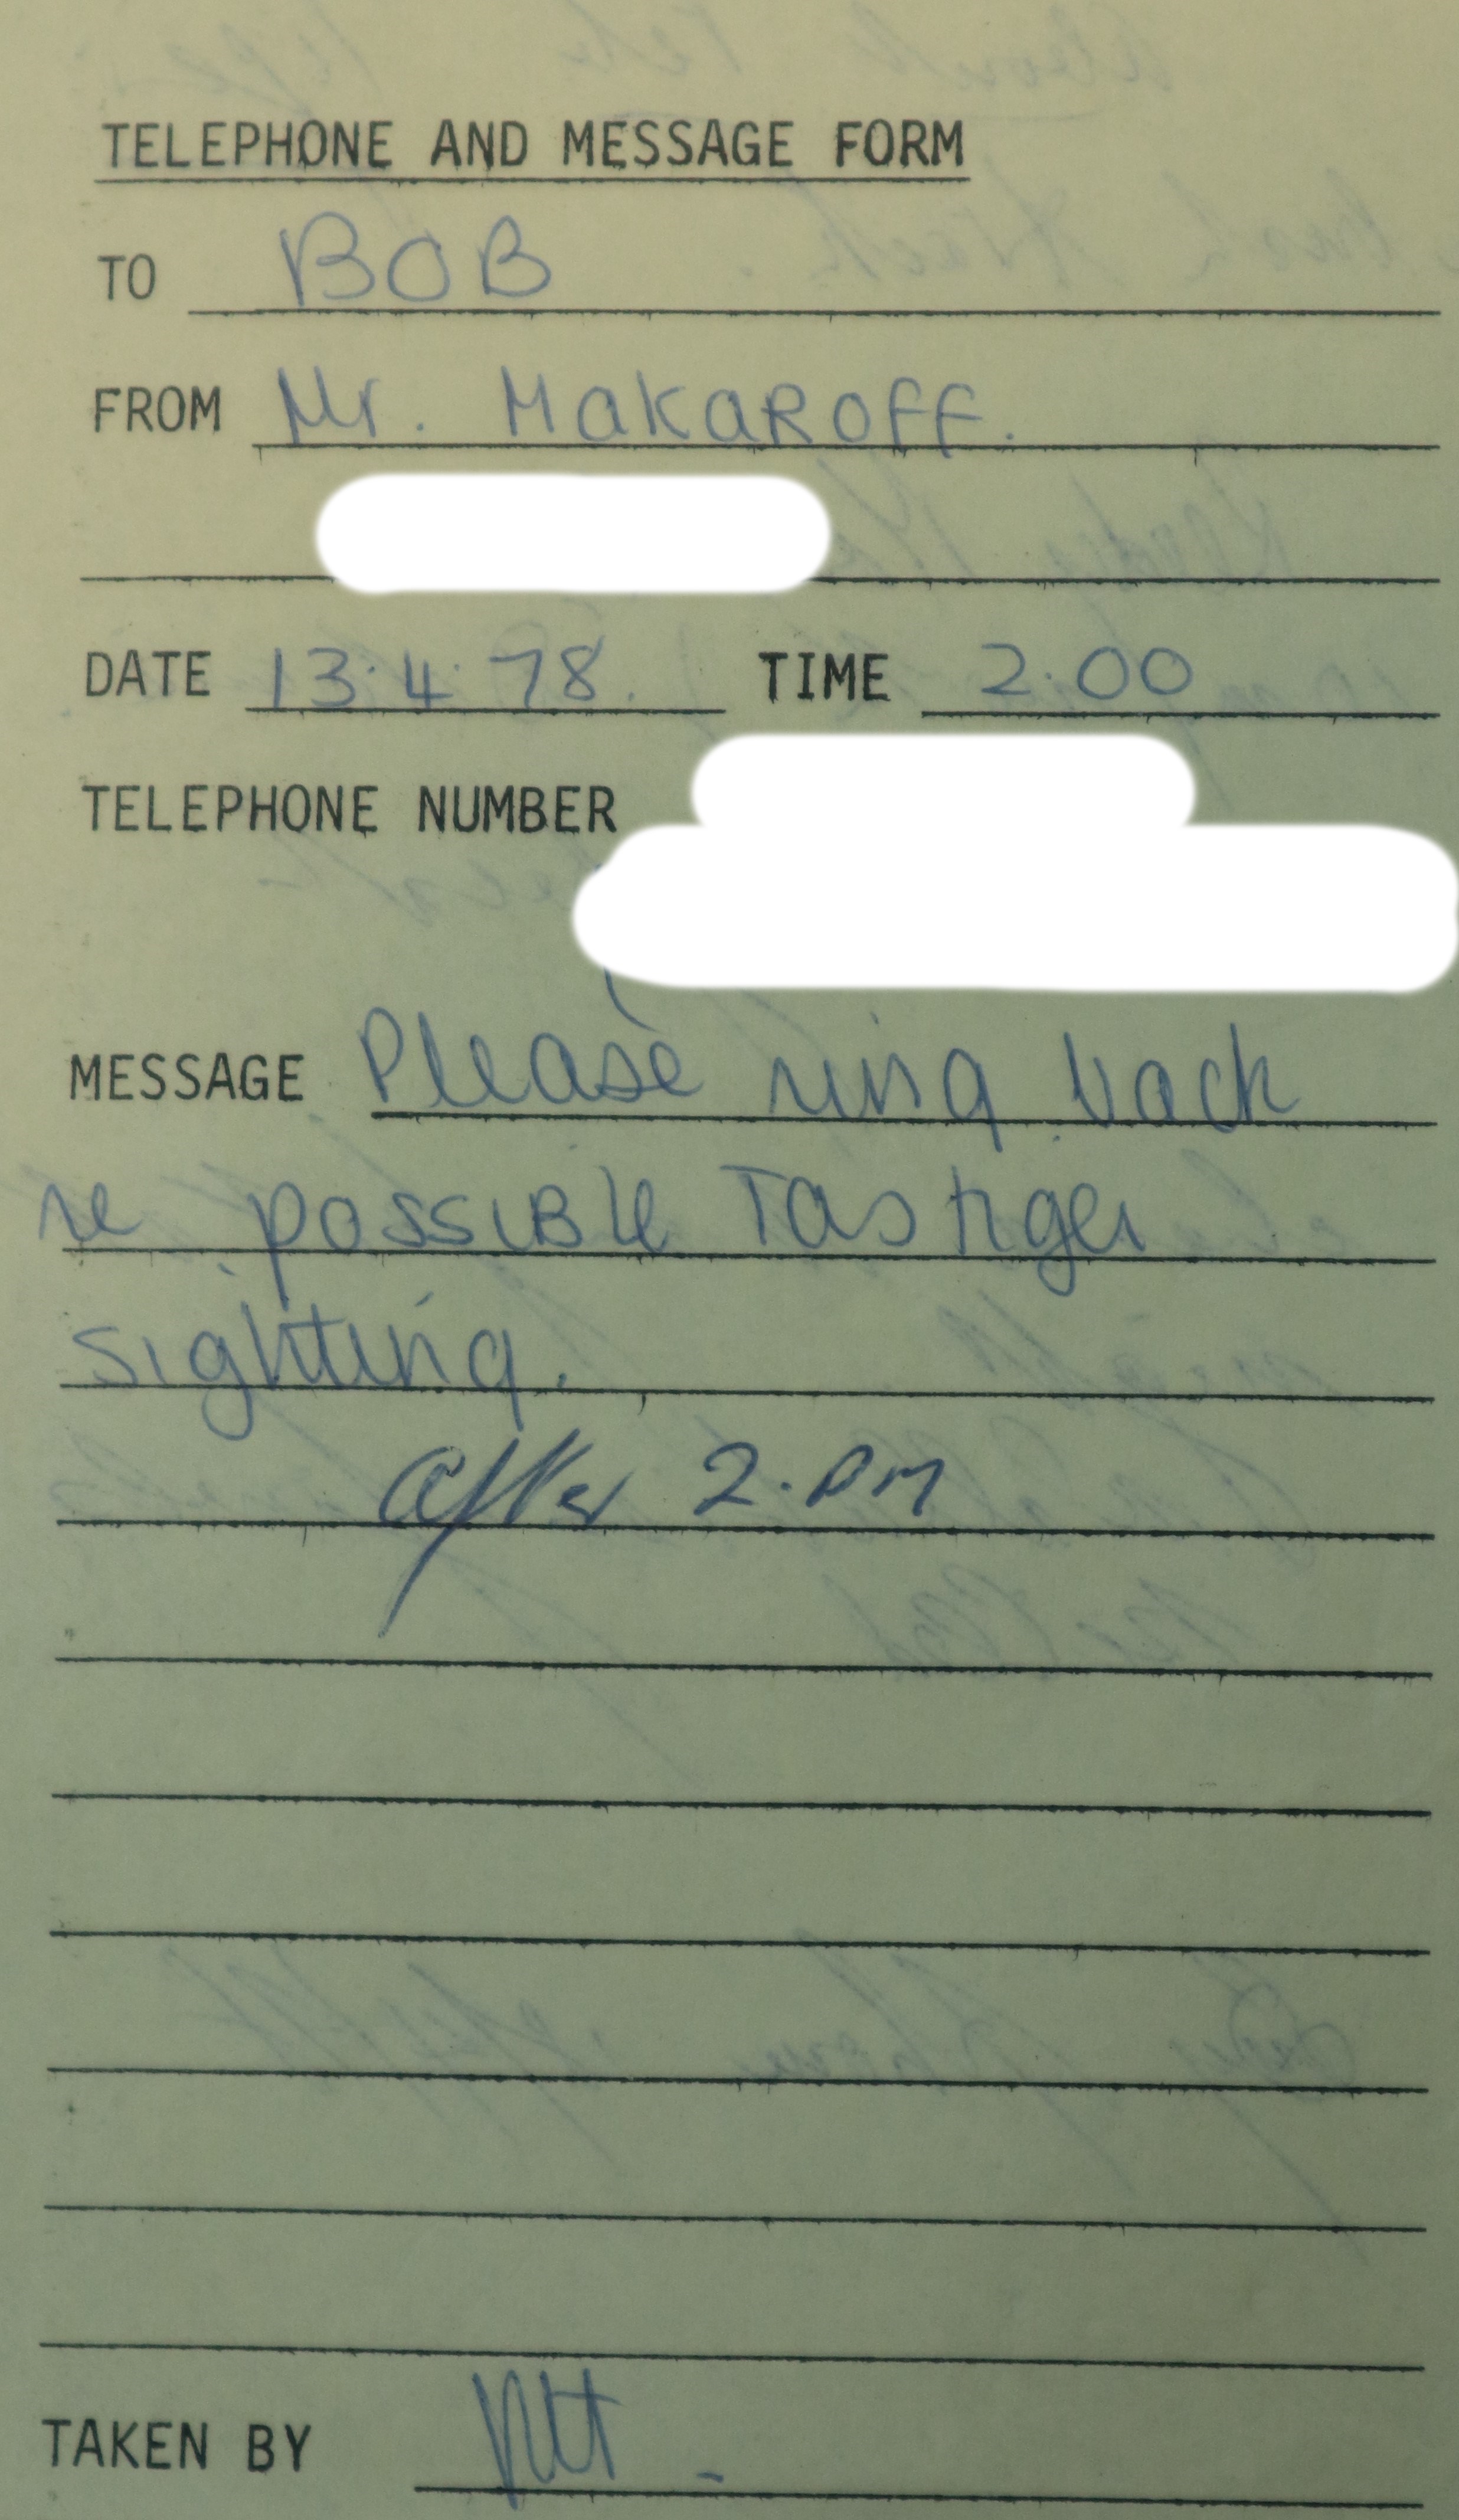 TELEPHONE AND MESSAGE FORM
TO BOB
FROM Mr. MakaROFF.
DATE 13.4.78. TIME 2.00
TELEPHONE NUMBER
MESSAGE Please ring back
re possible Tas tiger
sighting.
after 2.PM
TAKEN BY